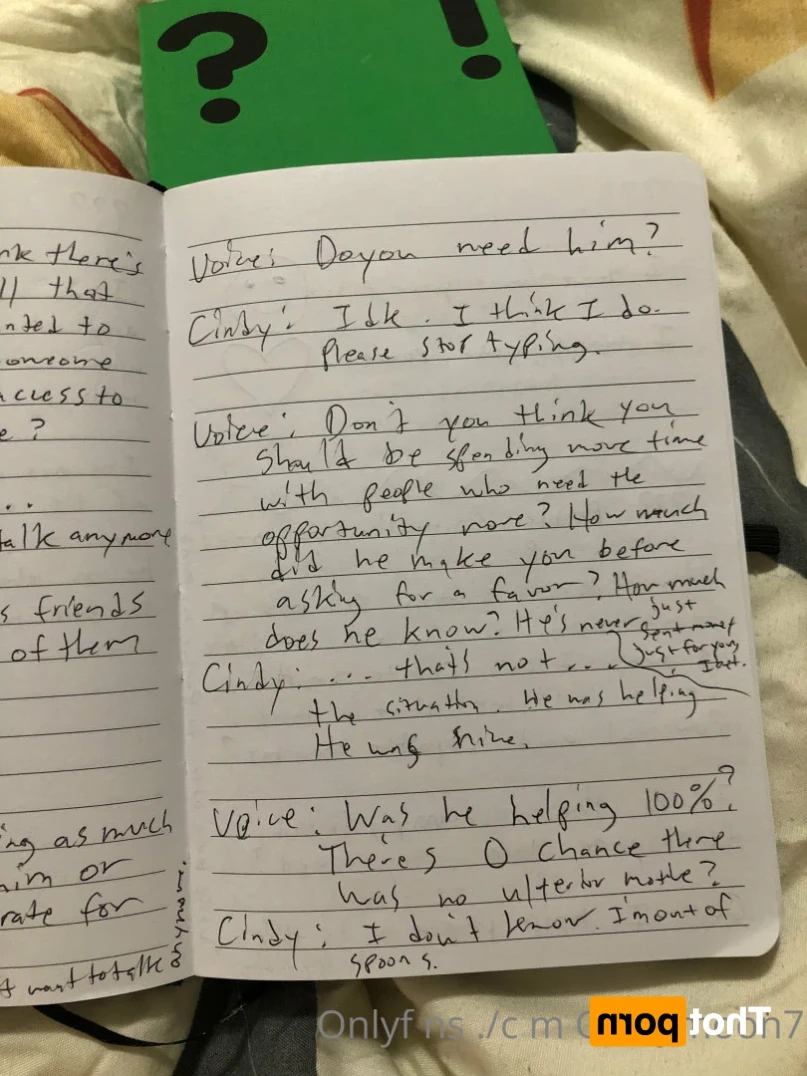 ?
!
nk there's
ll that
nted to
omeone
access to
e?
..
talk anymore
s friends
of them
ing as much
him or
rate for
t want to talk
anymore.
Voice: Do you need him?
Cindy: Idk. I think I do.
Please stop typing.
Voice: Don't you think you
should be spending more time
with people who need the
opportunity more? How much
did he make you before
asking for a favor? How much
does he know? He's never just
sent money
just for you,
I bet.
Cindy: ... that's not ...
the situation. He was helping
He was
Voice: Was he helping 100%?
There's 0 chance there
was no ulterior motive?
Cindy: I don't know. I'm out of
spoons.
Onlyf ns ./c m
Thot porn